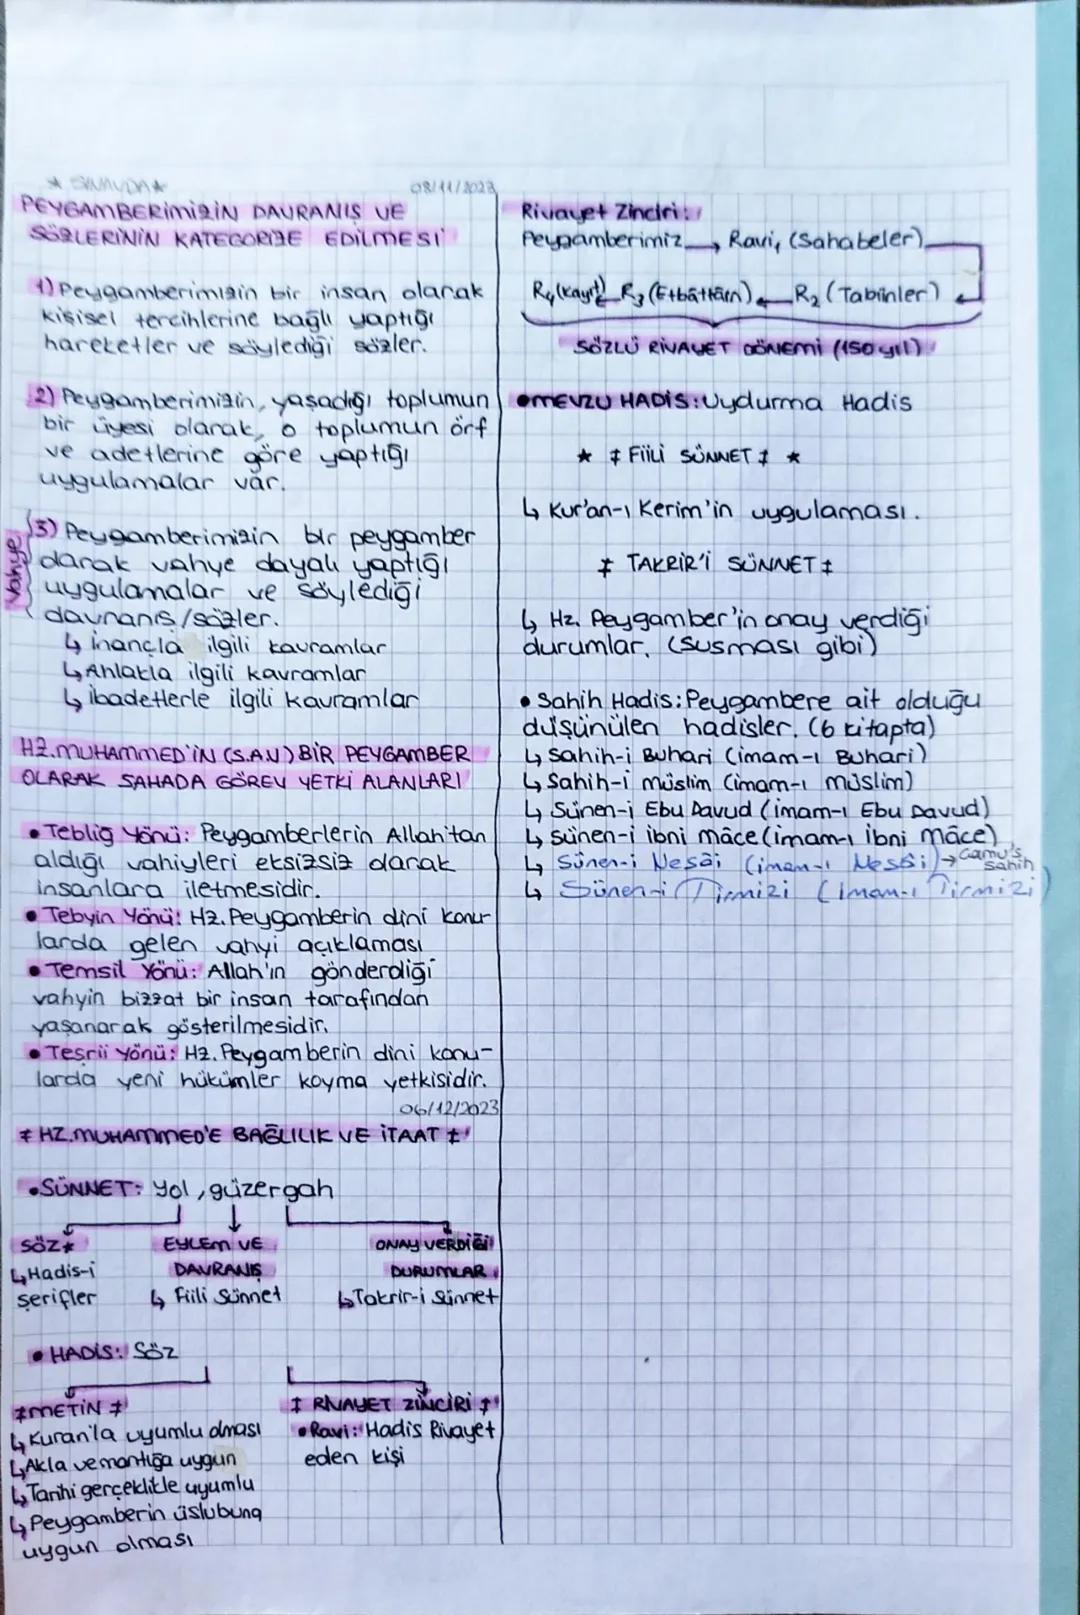 ★ SINAVDA ★
08/11/2023
PEYGAMBERİMİZİN DAVRANIŞ VE
SÖZLERİNİN KATEGORİZE EDİLMESİ
1) Peygamberimizin bir insan olarak
kişisel tercihlerine bağlı yaptığı
hareketler ve söylediği sözler.
2) Peygamberimizin, yaşadığı toplumun
bir üyesi olarak, o toplumun örf
ve adetlerine göre yaptığı
uygulamalar var.
Vahye
3) Peygamberimizin bir peygamber
olarak vahye dayalı yaptığı
uygulamalar ve söylediği
davranış/sözler.
↳ inançla ilgili kavramlar
↳ Ahlakla ilgili kavramlar
↳ ibadetlerle ilgili kavramlar
HZ.MUHAMMED'İN (S.A.V) BİR PEYGAMBER
OLARAK SAHADA GÖREV YETKİ ALANLARI
• Tebliğ Yönü: Peygamberlerin Allah'tan
aldığı vahiyleri eksizsiz olarak
insanlara iletmesidir.
• Tebyin Yönü: Hz.Peygamberin dini konu-
larda gelen vahyi açıklaması
• Temsil Yönü: Allah'ın gönderdiği
vahyin bizzat bir insan tarafından
yaşanarak gösterilmesidir.
• Teşrii Yönü: Hz.Peygamberin dini konu-
larda yeni hükümler koyma yetkisidir.
06/12/2023
‡ HZ.MUHAMMED'E BAĞLILIK VE İTAAT ‡
• SÜNNET: Yol, güzergah
SÖZ★ EYLEM VE ONAY VERDİĞİ
↳ Hadis-i DAVRANIŞ DURUMLAR
şerifler ↳ Fiili Sünnet ↳ Takrir-i Sünnet
• HADİS: Söz
‡ METİN ‡ ‡ RİVAYET ZİNCİRİ ‡
↳ Kuran'la uyumlu olması • Ravi: Hadis Rivayet
↳ Akla ve mantığa uygun eden kişi
↳ Tarihi gerçeklikle uyumlu
↳ Peygamberin üslubuna
uygun olması
Rivayet Zinciri:
Peygamberimiz → Ravi₁ (Sahabeler)
R₄(kayıt) ← R₃ (Etbâttâîn) ← R₂ (Tabiinler)
SÖZLÜ RİVAYET DÖNEMİ (150 yıl)
• MEVZU HADİS: Uydurma Hadis
★ ‡ FİİLİ SÜNNET ‡ ★
↳ Kur'an-ı Kerim'in uygulaması.
‡ TAKRİR'İ SÜNNET ‡
↳ Hz. Peygamber'in onay verdiği
durumlar. (Susması gibi)
• Sahih Hadis: Peygambere ait olduğu
düşünülen hadisler. (6 kitapta)
↳ Sahih-i Buhari (imam-ı Buhari)
↳ Sahih-i müslim (imam-ı müslim)
↳ Sünen-i Ebu Davud (imam-ı Ebu Davud)
↳ Sünen-i ibni mâce (imam-ı ibni mâce)
↳ Sünen-i Nesâi (imam-ı Nesâi) → Camu's sahih
↳ Sünen-i Tirmizi (imam-ı Tirmizi)